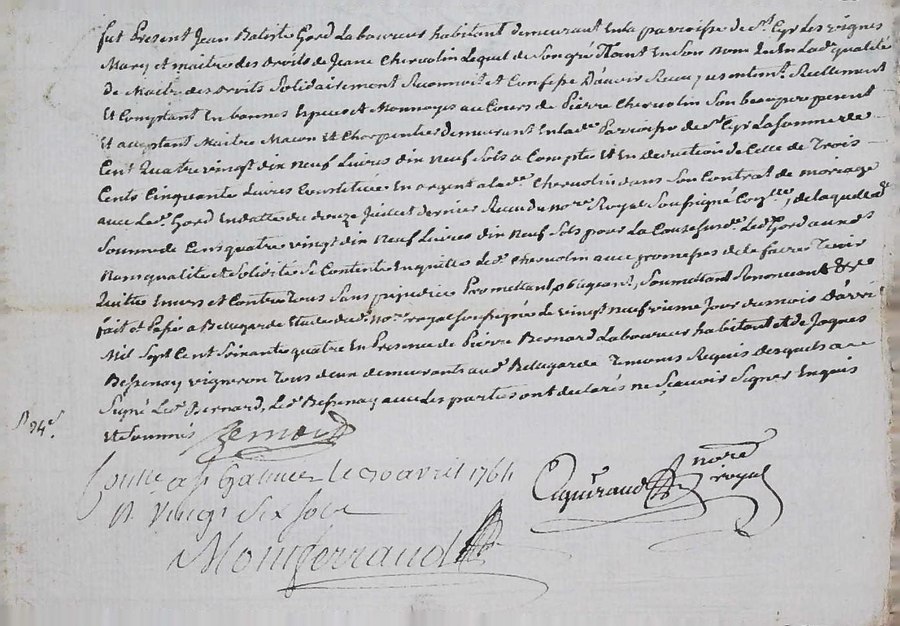 fut Present Jean Batiste Gord Laboureur habitant demeurant En la parroisse de St Cyr Les vignes
Mary et maitre des droits de Jeane Chervolin Lequel de Son gré Tant En Son Nom qu'En Lade qualité
de Maitre des droits Solidairement Reconnoit et Confesse D'avoir Receu Reellement
Et Comptant En bonnes Especes et Monnoyes au Cours de Pierre Chervolin Son beaupere present
Et acceptant Maitre Macon Et Charpentier demeurant En lade Parroisse de St Cyr La Somme de
Cent Quatre vingt dix Neuf Livres dix Neuf Sols a Compte Et En deduction de Celle de Trois
Cents Cinquante Livres Constituée En argent a lade Chervolin dans Son Contrat de mariage
avec Led. Gord En datte du douze Juillet dernier Receu du nore Royal Soussigné de laquelle de
Somme de Cent quatre vingt dix Neuf Livres dix Neuf Sols Led. Gord aux ds
Nom qualité et Solidité Se Contente En quitte Led. Chervolin avec promesse de le faire Tenir
Quitte Envers et Contre Tous Sans prejudice Promettant obligeant, Soumettant Renonceant &c
fait et Passé a Bellegarde Etude dud. Nore royal Soussigné Le vingt neufvieme Jour du mois D'avril
Mil Sept Cent Soixante quatre En Presence de Pierre Bernard Laboureur habitant et de Jaques
Bessenay vigneron Tous deux demeurants aud. Bellegarde Temoins Requis desquels a
Signé Led. Bernard, Led. Bessenay avec Les parties ont declarés ne Sçavoir Signer Enquis
Et Sommés Bernard
Conllé a St Galmier Le 30 avril 1764
R vingt Six Sols
nore
royal
Montferraud